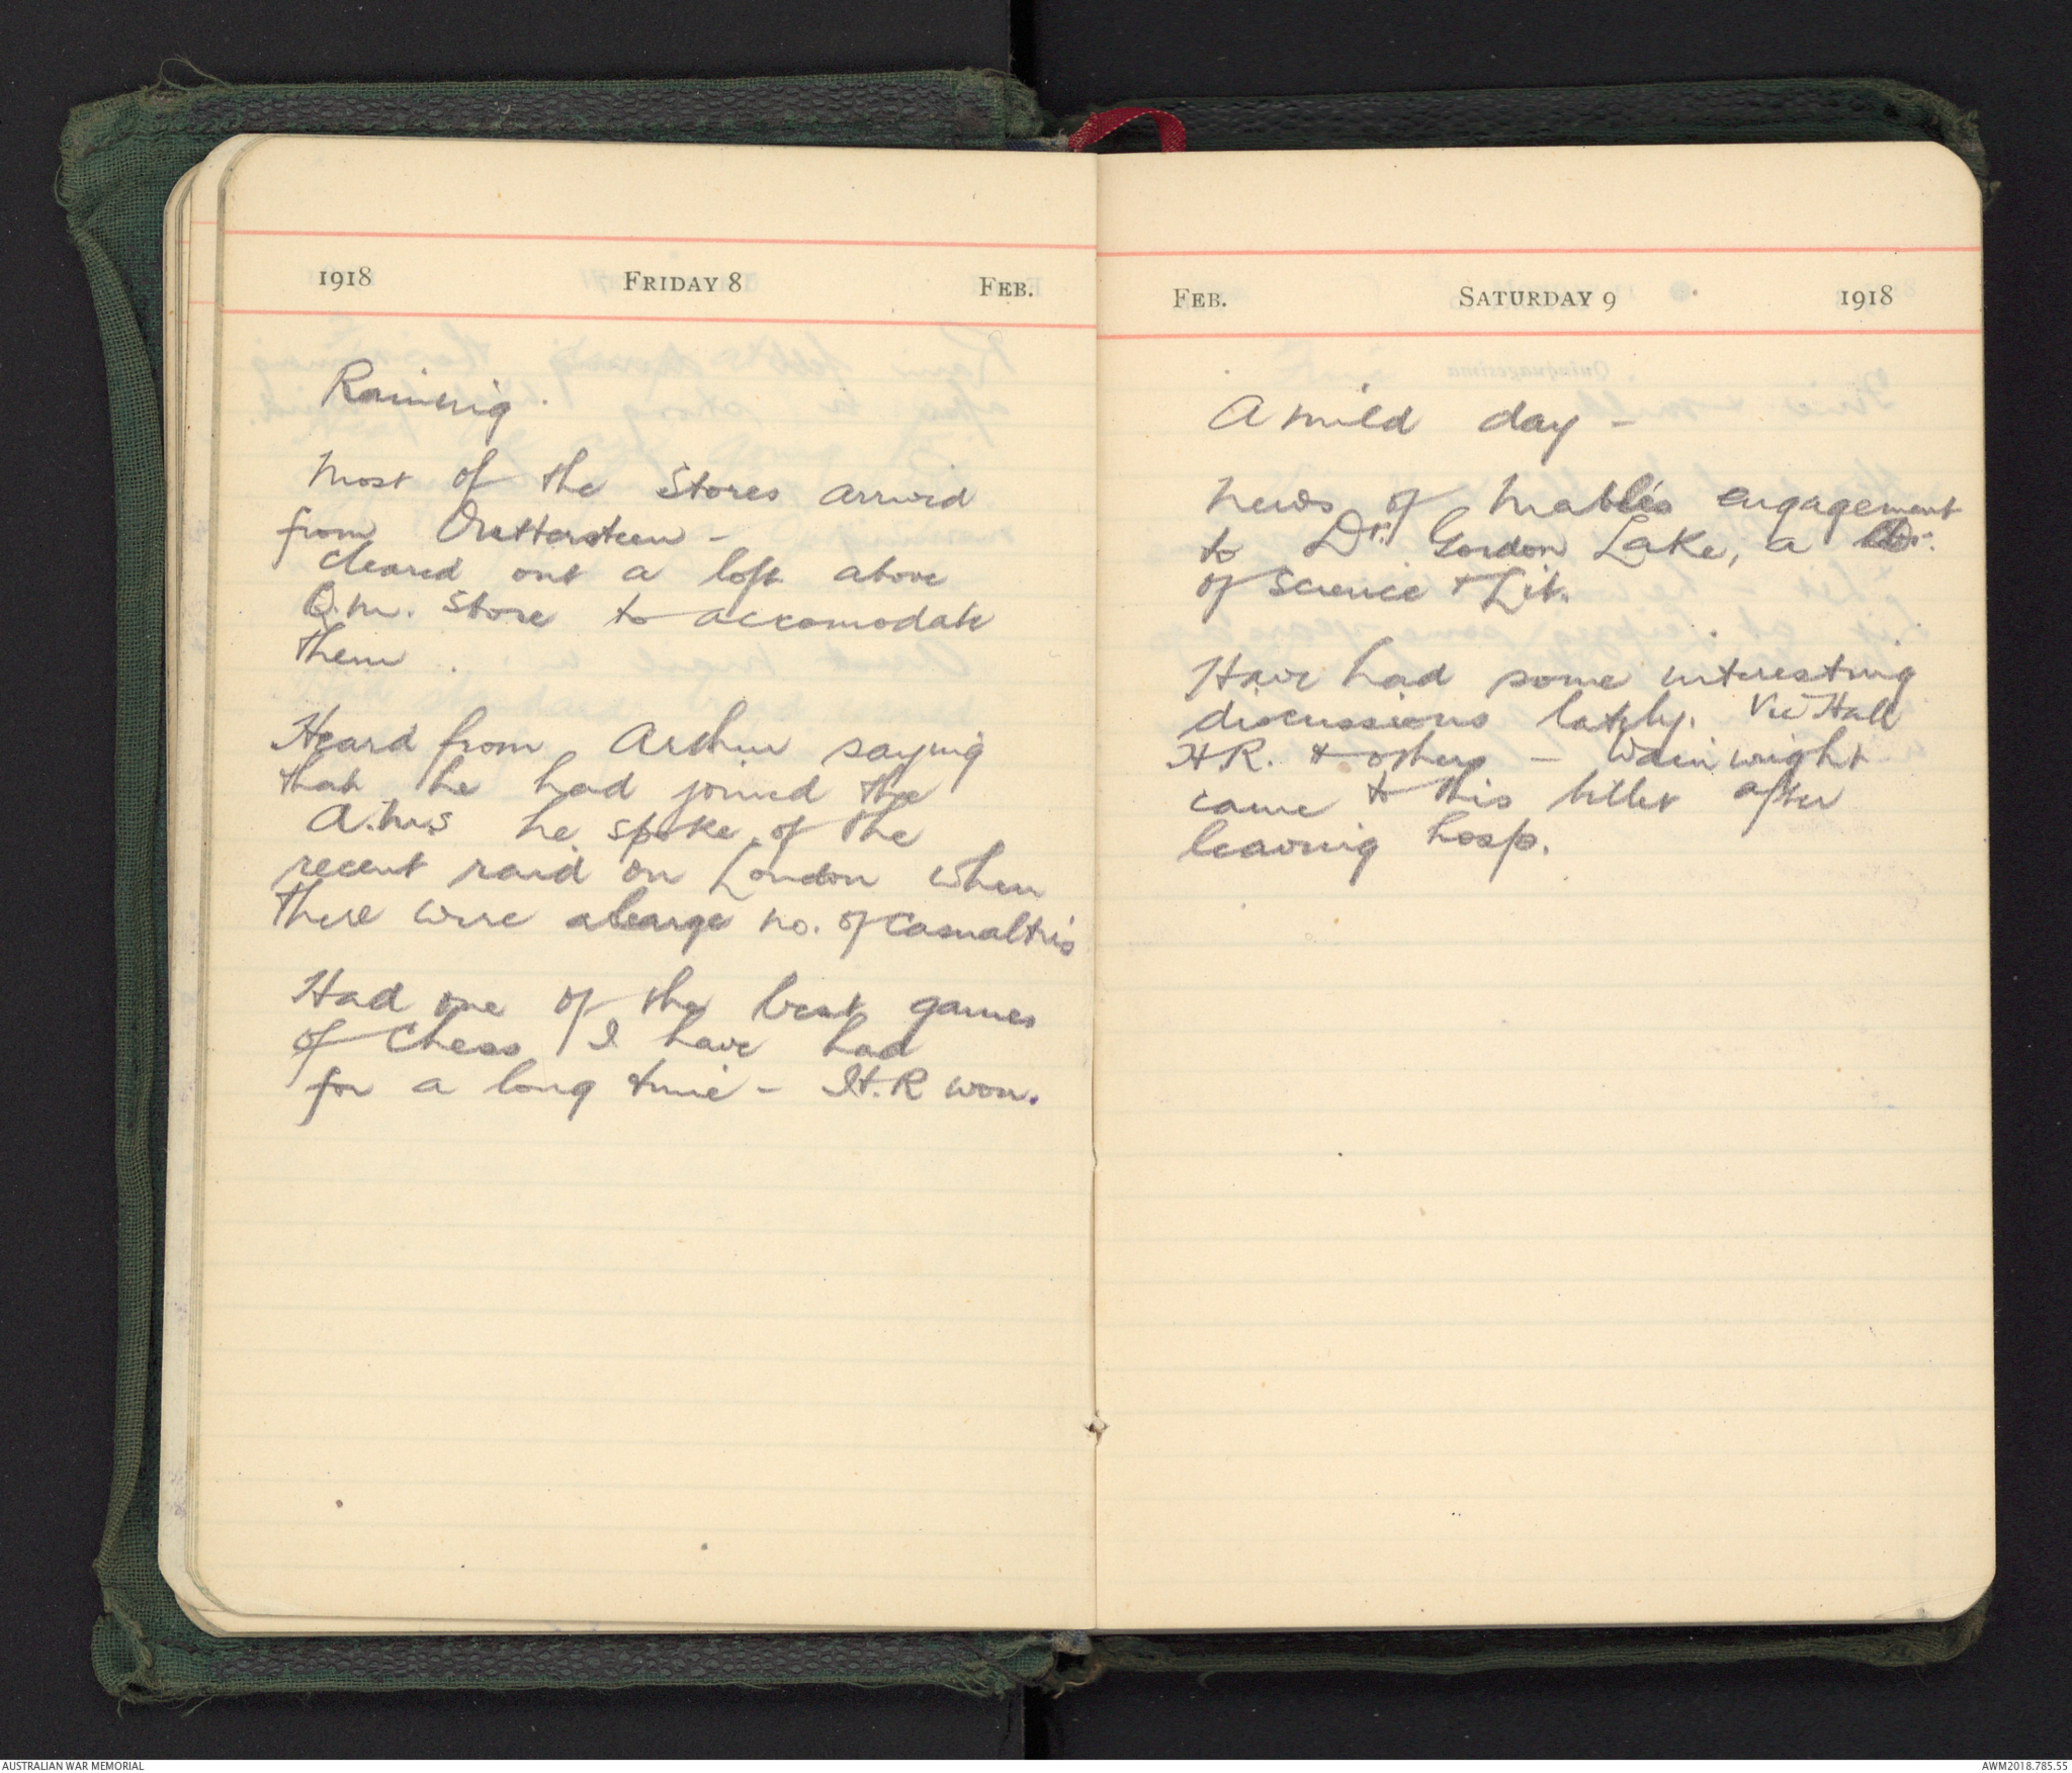 1918 FRIDAY 8 FEB.
Raining.
Most of the Stores arrived
from Outtersteen -
cleared out a loft above
Q.M. Store to accomodate
them.
Heard from Arthur saying
that he had joined the
A.M.S he spoke of the
recent raid on London when
there were a large no. of casualties
Had one of the best games
of Chess I have had
for a long time - H.R won.
FEB. SATURDAY 9 1918
A mild day -
News of Mable's engagement
to Dr. Gordon Lake, a Dr.
of Science & Lit.
Have had some interesting
discussions lately. Vic Hall
H.R. & others - Wainwright
came to this billet after
leaving hosp.
AUSTRALIAN WAR MEMORIAL
AWM2018.785.55